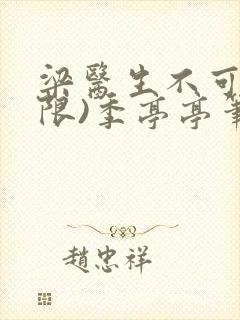 梁醫生不可
限)季亭亭筆
趙忠祥